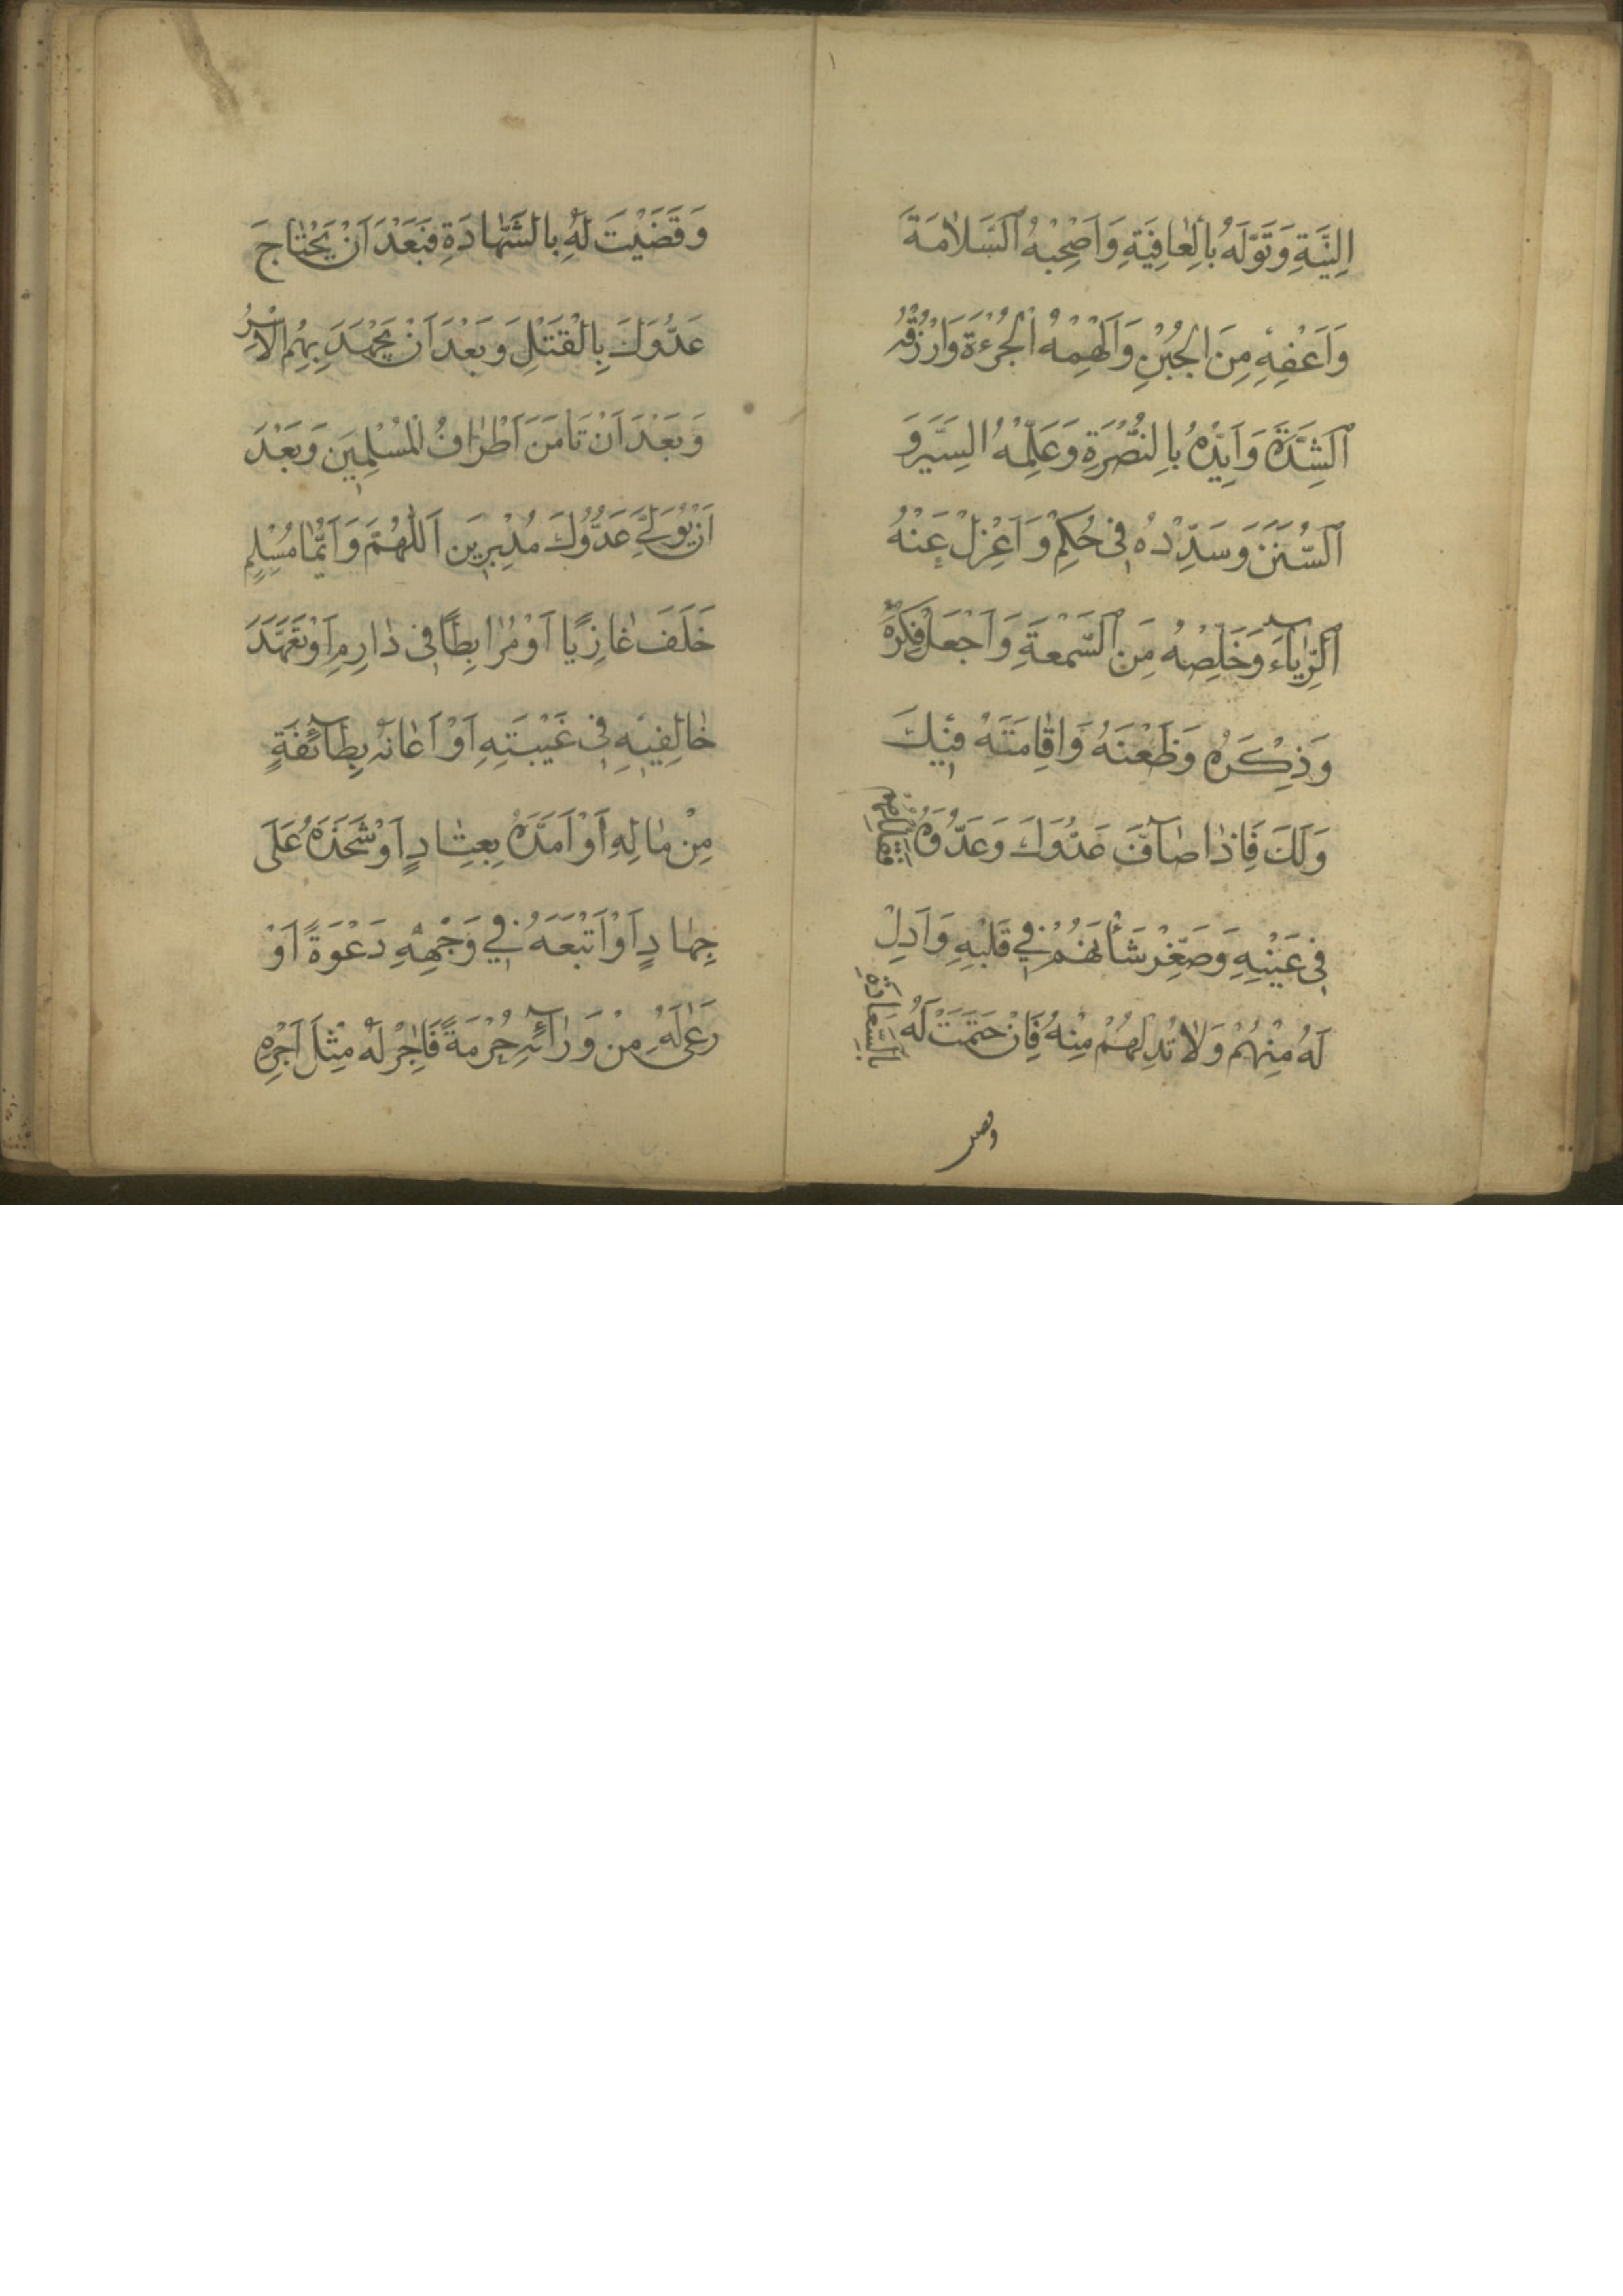 اِلنِّيَّةِ وَتَوَّلَهُ بِالْعٰافِيَةِ وَاَصْحِبْهُ اَلسَّلاٰمَةَ
وَاَعْفِهِ مِنَ الْجُبْنِ وَاَلْهِمْهُ الْجُرْءَةَ وَارْزُقْهُ
اَلشِّدَّةَ وَاَيِّدْهُ بِالنُّصْرَةِ وَعَلِّمْهُ السِّيَرَ وَ
اَلسُّنَنَ وَسَدِّدْهُ فِى حُكْمِ وَاَعْزِلْ عَنْهُ
اَلرِّيٰآءَ وَخَلِّصْهُ مِنَ السُّمْعَةِ وَاَجْعَلْ فِكْرَهُ
وَذِكْرَهُ وَظَعْنَهُ وَاِقٰامَتَهُ فِيْكَ
وَلَكَ فَاِذٰا صٰآفَّ عَدُّوَكَ وَعَدُّوَهُ فَقَلِّلْهُمْ
فِى عَيْنِهِ وَصَغِّرْ شَأْنَهُمْ فِي قَلْبِهِ وَاَدِلْ
لَهُ مِنْهُمْ وَلاٰ تُدِلْهُمْ مِنْهُ فَاِنْ خَتَمْتَ لَهُ بِالسَّعٰادَةِ
وقضى
وَقَضَيْتَ لَهُ بِالشَّهٰادَةِ فَبَعْدَ اَنْ يَجْتٰاحَ
عَدُّوَكَ بِالْقَتْلِ وَبَعْدَ اَنْ يَجْهَدَ بِهِمُ الْاَسْرُ
وَبَعْدَ اَنْ تَاْمَنَ اَطْرٰافُ الْمُسْلِمِينَ وَبَعْدَ
اَنْ يُوَلِّيَ عَدُّوُكَ مُدْبِرِينَ اَللّٰهُمَّ وَاَيُّمٰا مُسْلِمٍ
خَلَفَ غٰازِيًا اَوْ مُرٰابِطًا فِى دٰارِهِ اَوْ تَعَهَّدَ
خٰالِفِيهِ فِى غَيْبَتِهِ اَوْ اَعٰانَهُ بِطٰآئِفَةٍ
مِنْ مٰالِهِ اَوْ اَمَدَّهُ بِعِتٰادٍ اَوْ شَحَذَهُ عَلَى
جِهٰادٍ اَوْ اَتْبَعَهُ فِي وَجْهِهِ دَعْوَةً اَوْ
رَعٰى لَهُ مِنْ وَرٰآئِهِ حُرْمَةً فَاٰجِرْ لَهُ مِثْلَ اَجْرِهِ